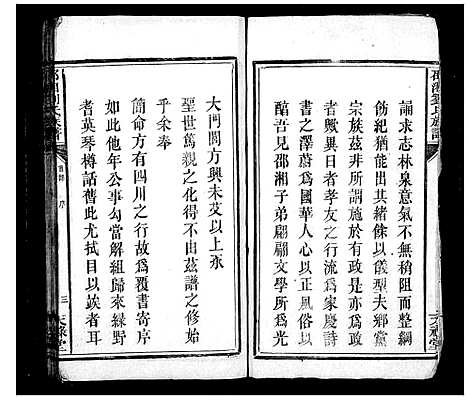 邵湘劉氏族譜
誦求志林泉意氣不無稍阻而整綱
飭紀猶能出其緒餘以儀型夫鄉黨
宗族茲非所施於有政是亦為政之
一端與異日者孝友傳家承家慶詩
書之澤蔚為國華人心以正風俗以
醕吾見邵湘子弟翩翩文學所為光
大門閭方興未艾以上承
聖世篤親之化得不由茲譜之修始
乎余奉
簡命方有四川之行故為覆寄序
如此他年公事勾當解組歸來綠野
者英琴樽話舊此尤拭目以竢者耳
序
三
天祿堂